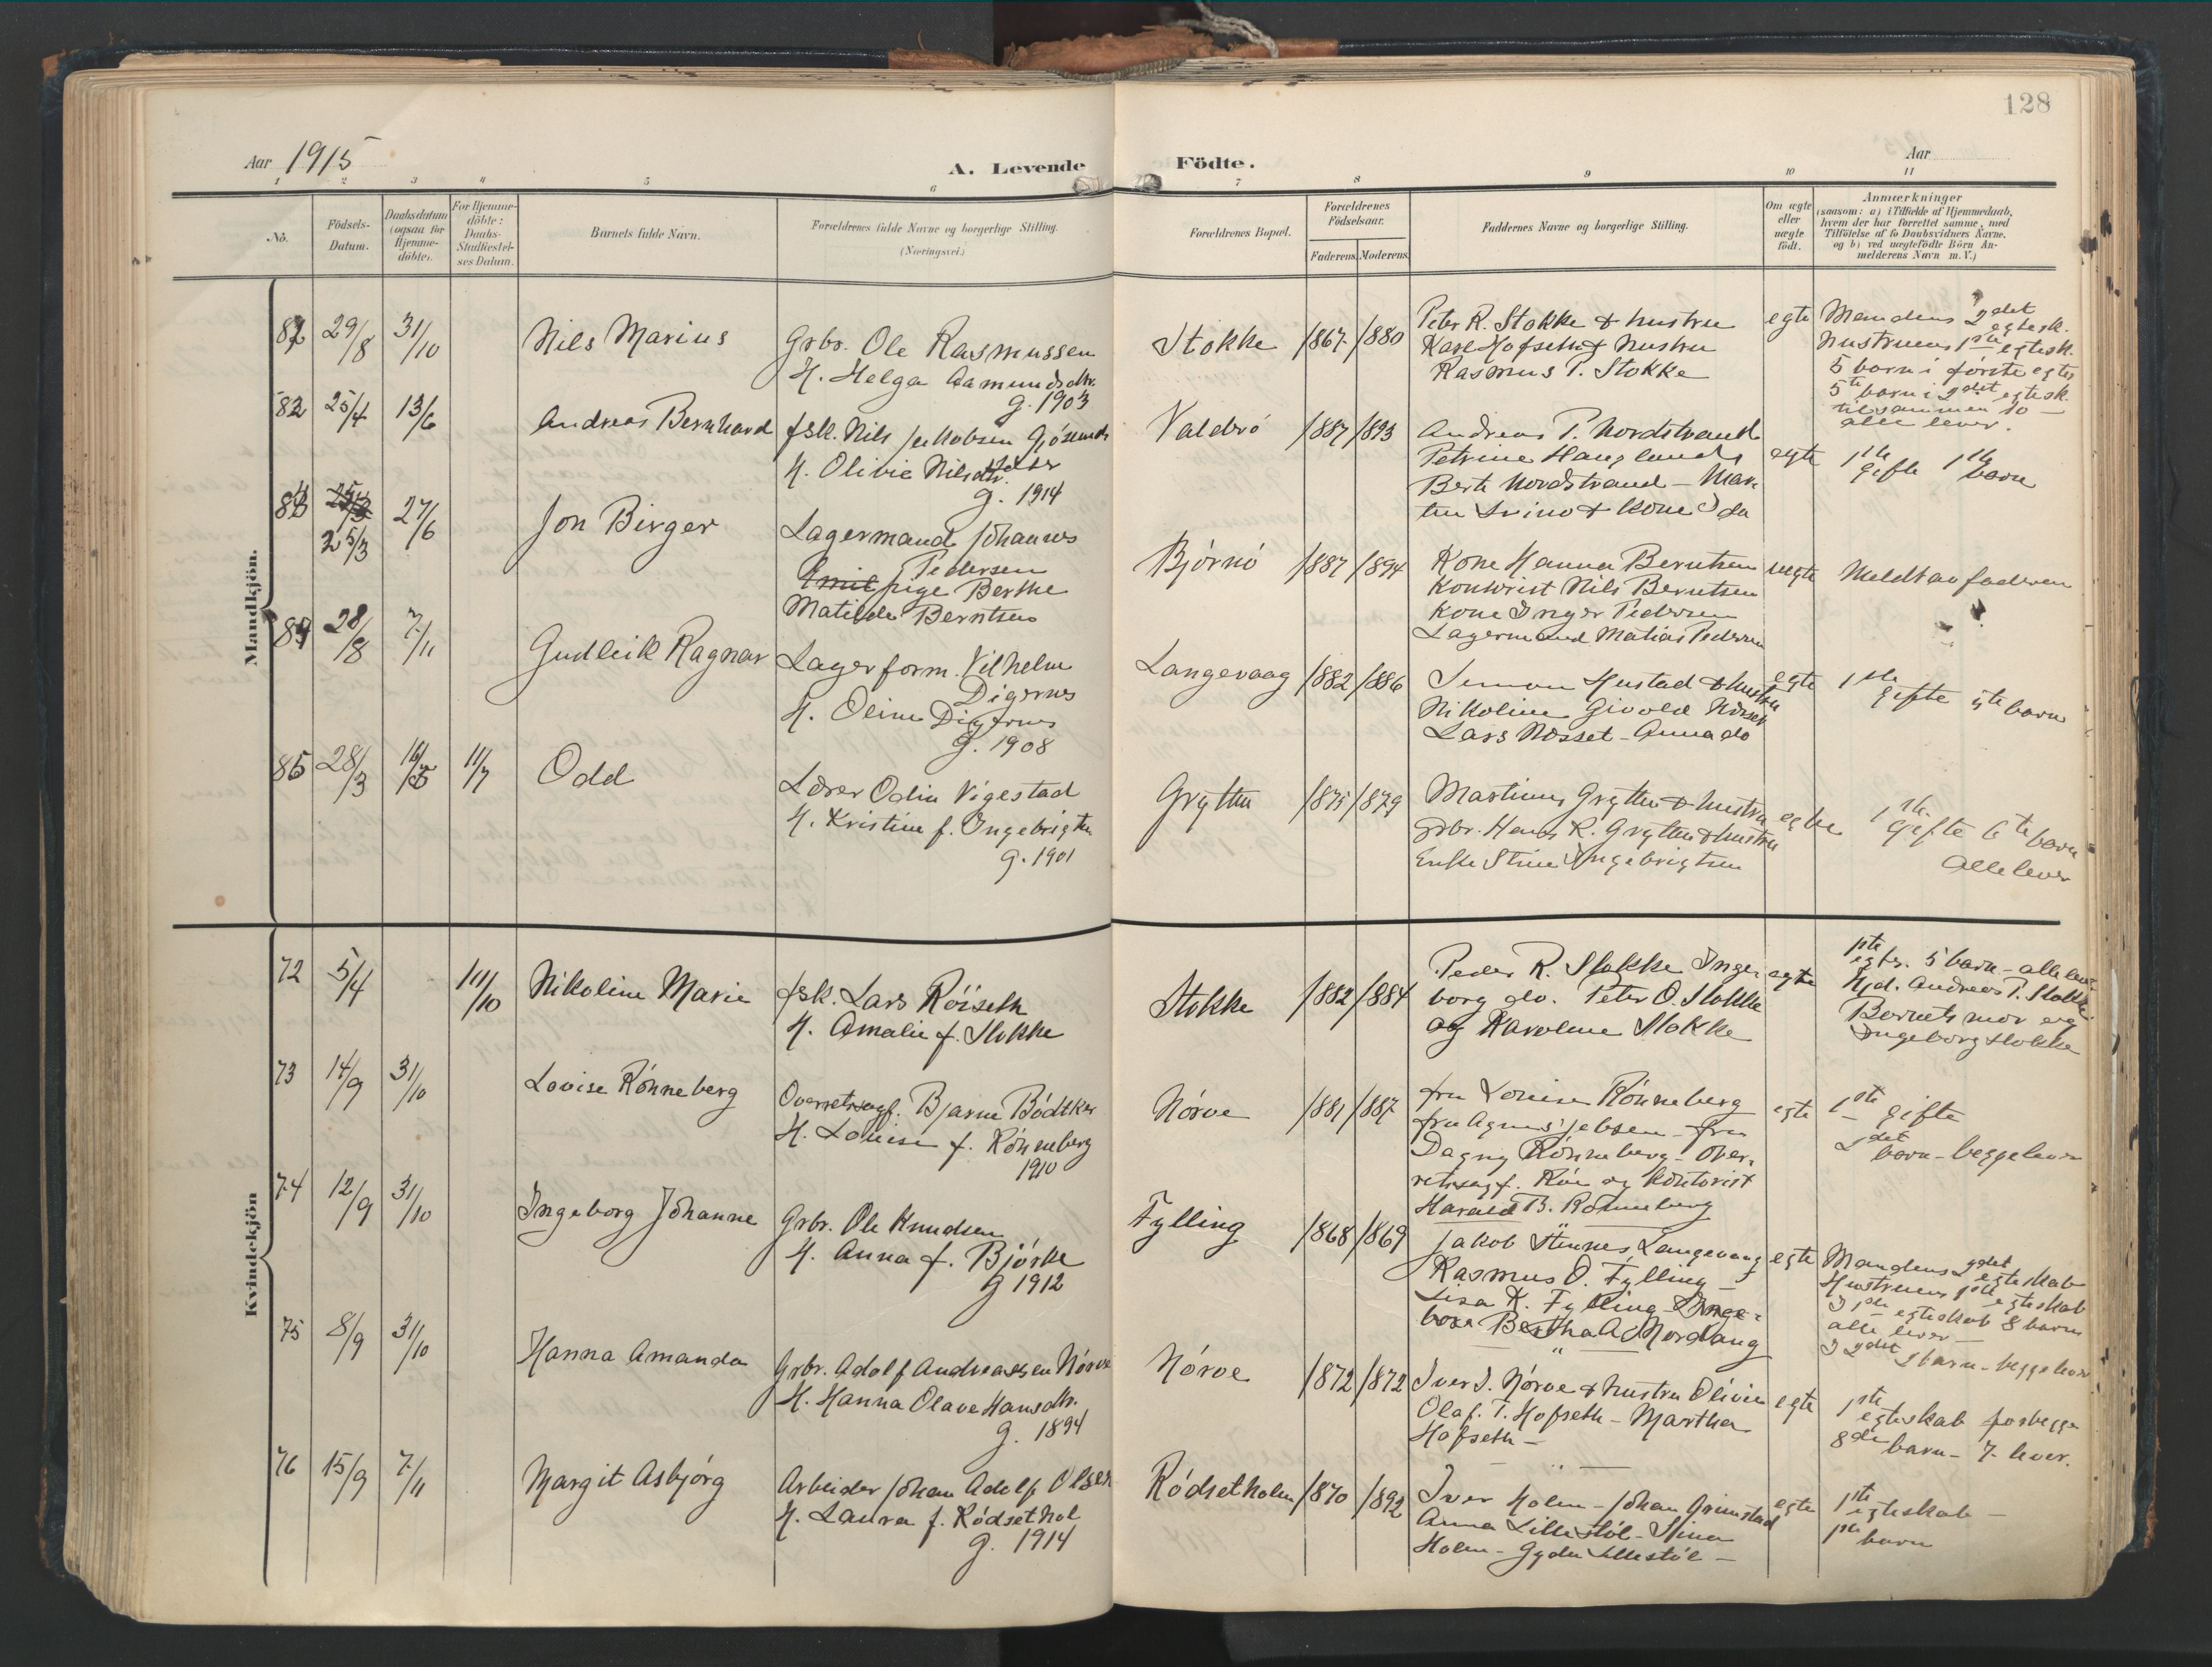 128
Aar 1915
A. Levende Födte.
Aar
1 2 3 4 5 6 7 8 9 10 11
No.
Födsels-
Datum.
Daabsdatum
(ogsaa for
Hjemme-
döbte).
For Hjemme-
döbte:
Daabs-
Stadfæstel-
ses Datum.
Barnets fulde Navn.
Forældrenes fulde Navne og borgerlige Stilling.
(Næringsvei.)
Forældrenes Bopæl.
Forældrenes
Födselsaar.
Faderens Moderens
Faddernes Navne og borgerlige Stilling.
Om ægte
eller
uægte
födt.
Anmærkninger
(saasom: a) i Tilfælde af Hjemmedaab,
hvem der har forrettet samme, med
Tilföielse af to Daabsvidners Navne.
og b) ved uægtefödte Börn An-
melderens Navn m. V.)
Mandkjön.
29/8 31/10
Nils Marius
Grbr. Ole Rasmussen
H. Helga Aamundsdtr.
g. 1903
Stokke 1867 1880
Peter R. Stokke & hustru
Karl Hofseth & hustru
Rasmus P. Stokke
egte
Mandens 2det
egtesk.
Hustruens 1ste egtesk.
5 barn i første egtes
5te barn i 2det egtesk.
tilsammen 10 —
alle lever.
82 25/4 13/6
Andreas Bernhard
fsk. Nils Jakobsen
H. Olivie Nilsdtr.
g. 1914
Valderö 1887 1893
Andreas P. Nordstrand
Petrine Hauglund
Berte Nordstrand — Mar-
tin & kone Ida
egte
1ste gifte 1ste barn
83 25/3 27/6
Jon Birger
Lagermand Johannes
Pedersen
pige Berthe
Matilde Berntsen
Björnö 1887 1894
Kone Hanna Berntsen
Kontorist Nils Berntsen
Kone Inger Pedersen
Lagermand Matias Pedersen
uegte
Meldt av faderen
84 28/8 7/11
Gudleik Ragnar
Lagerform. Vilhelm
Digernes
H. Oline Digernes
g. 1908
Langevaag 1882 1886
Simon Hustad & hustru
Nikoline Givold
Lars Næsset — Anna do
egte
1ste gifte 5te barn
85 28/3 11/7
Odd
Lærer Odin Vigestad
H. Kristine f. Ingebrigtsen
g. 1901
Grytten 1875 1879
Martinus Grytten & hustru
Grbr. Hans K. Grytten & hustru
Enke Stine Ingebrigtsen
egte
1ste gifte 6te barn
alle lever
Kvindekjön
72 5/4 /10
Nikoline Marie
fsk. Lars Röiseth
H. Amalie f. Stokke
Stokke 1882 1884
Peder R. Stokke Inge-
borg do. Peter O. Stokke
og Karoline Stokke
egte
1ste egtes. 5 barn — alle lever
Hjd. Andreas P. Stokke
Barnets mor og
Ingeborg Stokke
73 14/9 31/10
Lovise Rönneberg
Overretssagf. Bjarne Bödtker
H. Louise f. Rönneberg
1910
Nörve 1881 1887
fru Louise Rönneberg
fru Agnes Jebsen — fru
Dagny Rönneberg — Over-
retssagf. Röe og kontorist
Harald B. Rönneberg
egte
1ste gifte
2det barn — begge lever
74 12/9 31/10
Ingeborg Johanne
Grbr. Ole Knudsen
H. Anna f. Björke
g 1912
Fylling 1868 1869
Jakob Langevaag
Rasmus O. Fylling —
Lisa K. Fylling — Inge-
borg Bertha A Mordang
egte
Mandens 2det
egteskab
Hustruens 1ste egteskab
I 1ste egteskab 8 barn
alle lever —
I 2det 2 barn — begge lever
75 8/9 31/10
Hanna Amanda
Grbr. Adolf Andreassen Nörve
H. Hanna Olave Hansdtr.
g. 1894
Nörve 1872 1872
Iver I. Nörve & hustru Olivie
Olaf. T. Hofseth — Martha
Hofseth —
egte
1ste egteskab for begge
8de barn — 7 lever.
76 15/9 7/11
Margit Asbjörg
Arbeider Johan Adolf Olsen
H. Laura f. Rödsethol
g. 1914
Rödsetholm 1870 1892
Iver Holm — Johan Grimstad
Anna Lillestöl — Stina
Holm — Gyda Lillestöl —
egte
1ste egteskab —
1ste barn